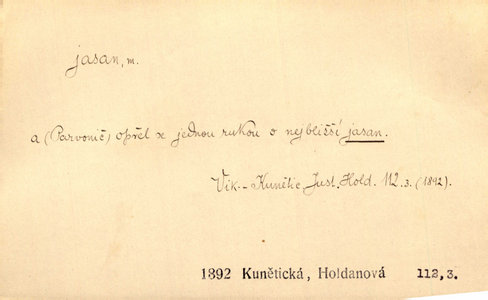 jasan, m.
a (Parvonič) opřel se jednou rukou o nejbližší jasan.
Vik. - Kunětic, Just. Hold. 112.3. (1892).
1892 Kunětická, Holdanová 112,3.